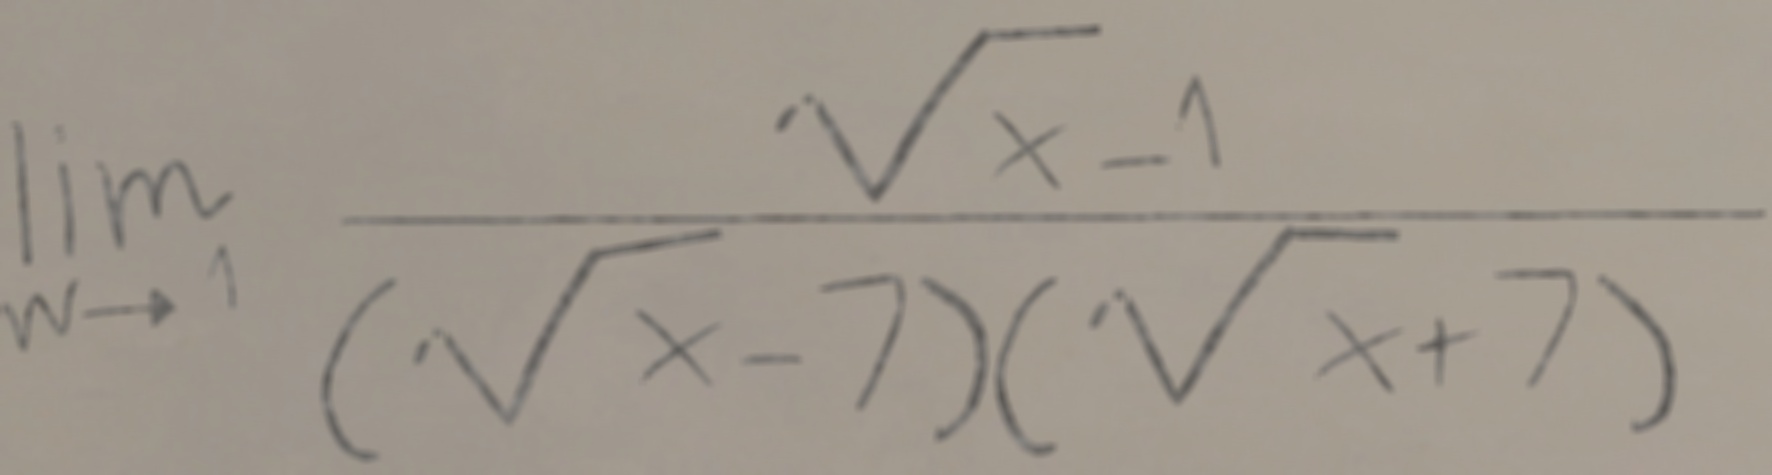 lim w→1 (√x-1)/((√x-7)(√x+7))